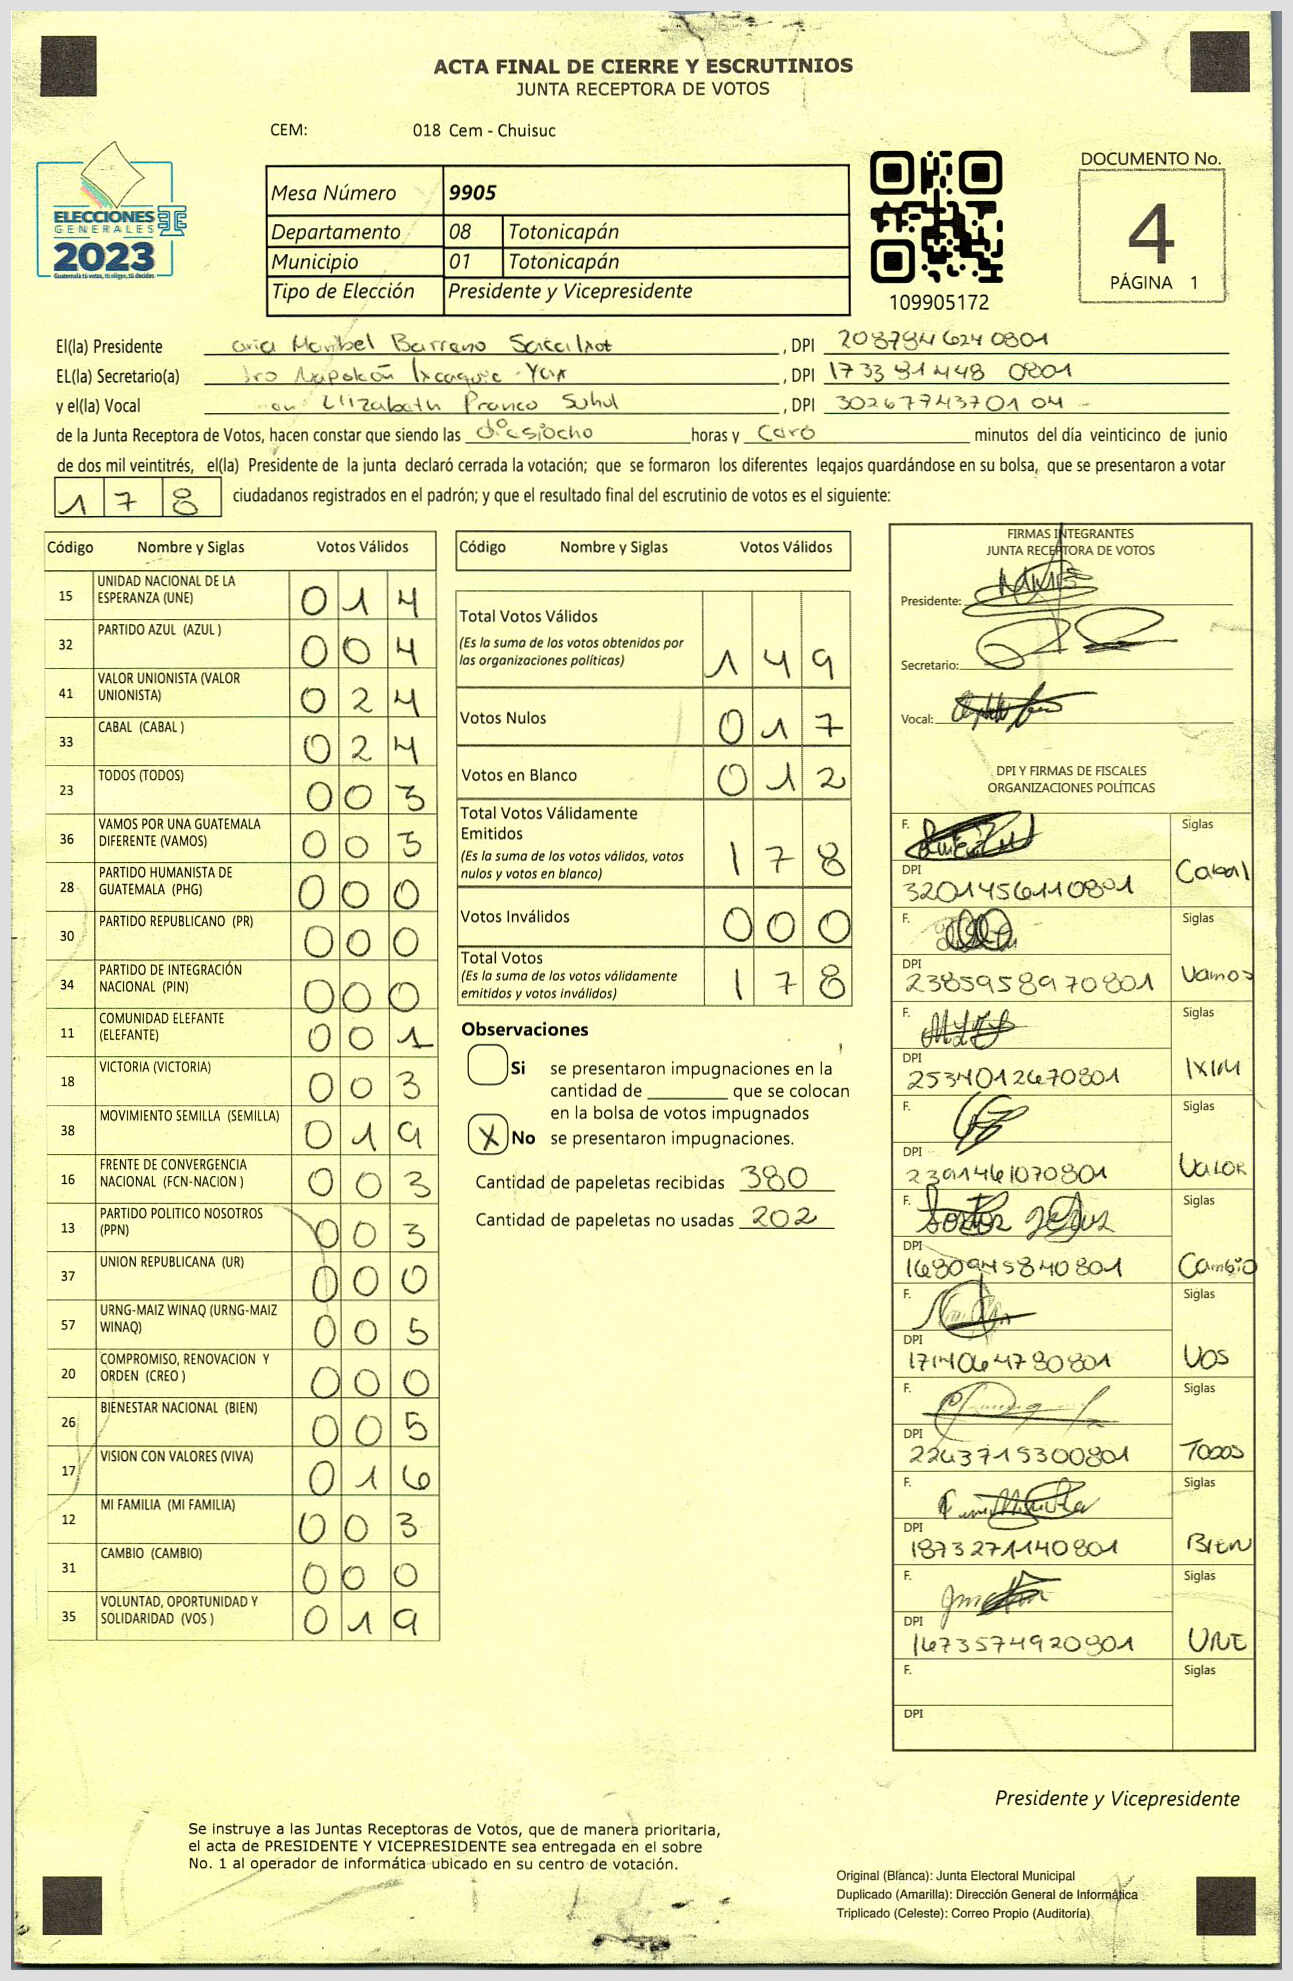 ACTA FINAL DE CIERRE Y ESCRUTINIOS
JUNTA RECEPTORA DE VOTOS
CEM: 018 Cem - Chuisuc
ELECCIONES
GENERALES
2023
Guatemala tú votas, tú eliges, tú decides
Mesa Número 9905
Departamento 08 Totonicapán
Municipio 01 Totonicapán
Tipo de Elección Presidente y Vicepresidente
109905172
DOCUMENTO No.
4
PÁGINA 1
El(la) Presidente aria Maribel Barreno , DPI 2087846240801
EL(la) Secretario(a) Napoleón , DPI 1733 81448 0801
y el(la) Vocal Elizabeth , DPI 3026774370104
de la Junta Receptora de Votos, hacen constar que siendo las diesiocho horas y cero minutos del día veinticinco de junio
de dos mil veintitrés, el(la) Presidente de la junta declaró cerrada la votación; que se formaron los diferentes legajos guardándose en su bolsa, que se presentaron a votar
178 ciudadanos registrados en el padrón; y que el resultado final del escrutinio de votos es el siguiente:
Código Nombre y Siglas Votos Válidos
15 UNIDAD NACIONAL DE LA ESPERANZA (UNE) 014
32 PARTIDO AZUL (AZUL ) 004
41 VALOR UNIONISTA (VALOR UNIONISTA) 024
33 CABAL (CABAL ) 024
23 TODOS (TODOS) 003
36 VAMOS POR UNA GUATEMALA DIFERENTE (VAMOS) 003
28 PARTIDO HUMANISTA DE GUATEMALA (PHG) 000
30 PARTIDO REPUBLICANO (PR) 000
34 PARTIDO DE INTEGRACIÓN NACIONAL (PIN) 000
11 COMUNIDAD ELEFANTE (ELEFANTE) 001
18 VICTORIA (VICTORIA) 003
38 MOVIMIENTO SEMILLA (SEMILLA) 019
16 FRENTE DE CONVERGENCIA NACIONAL (FCN-NACION ) 003
13 PARTIDO POLITICO NOSOTROS (PPN) 003
37 UNION REPUBLICANA (UR) 000
57 URNG-MAIZ WINAQ (URNG-MAIZ WINAQ) 005
20 COMPROMISO, RENOVACION Y ORDEN (CREO ) 000
26 BIENESTAR NACIONAL (BIEN) 005
17 VISION CON VALORES (VIVA) 016
12 MI FAMILIA (MI FAMILIA) 003
31 CAMBIO (CAMBIO) 000
35 VOLUNTAD, OPORTUNIDAD Y SOLIDARIDAD (VOS ) 019
Código Nombre y Siglas Votos Válidos
Total Votos Válidos
(Es la suma de los votos obtenidos por
las organizaciones políticas) 149
Votos Nulos 017
Votos en Blanco 012
Total Votos Válidamente
Emitidos
(Es la suma de los votos válidos, votos
nulos y votos en blanco) 178
Votos Inválidos 000
Total Votos
(Es la suma de los votos válidamente
emitidos y votos inválidos) 178
Observaciones
Si se presentaron impugnaciones en la
cantidad de ________ que se colocan
en la bolsa de votos impugnados
X No se presentaron impugnaciones.
Cantidad de papeletas recibidas 380
Cantidad de papeletas no usadas 202
FIRMAS INTEGRANTES
JUNTA RECEPTORA DE VOTOS
Presidente:
Secretario:
Vocal:
DPI Y FIRMAS DE FISCALES
ORGANIZACIONES POLÍTICAS
F. Siglas
DPI Cabal
3201456110801
F. Siglas
DPI Vamos
2385958970801
F. Siglas
DPI IXIM
2534012670801
F. Siglas
DPI VALOR
2391461070801
F. Siglas
DPI Cambio
1680945840801
F. Siglas
DPI VOS
1714064780801
F. Siglas
DPI TODOS
2263715300801
F. Siglas
DPI BIEN
1873271140801
F. Siglas
DPI UNE
1673574920801
F. Siglas
DPI
Presidente y Vicepresidente
Se instruye a las Juntas Receptoras de Votos, que de manera prioritaria,
el acta de PRESIDENTE Y VICEPRESIDENTE sea entregada en el sobre
No. 1 al operador de informática ubicado en su centro de votación.
Original (Blanca): Junta Electoral Municipal
Duplicado (Amarilla): Dirección General de Informática
Triplicado (Celeste): Correo Propio (Auditoría)